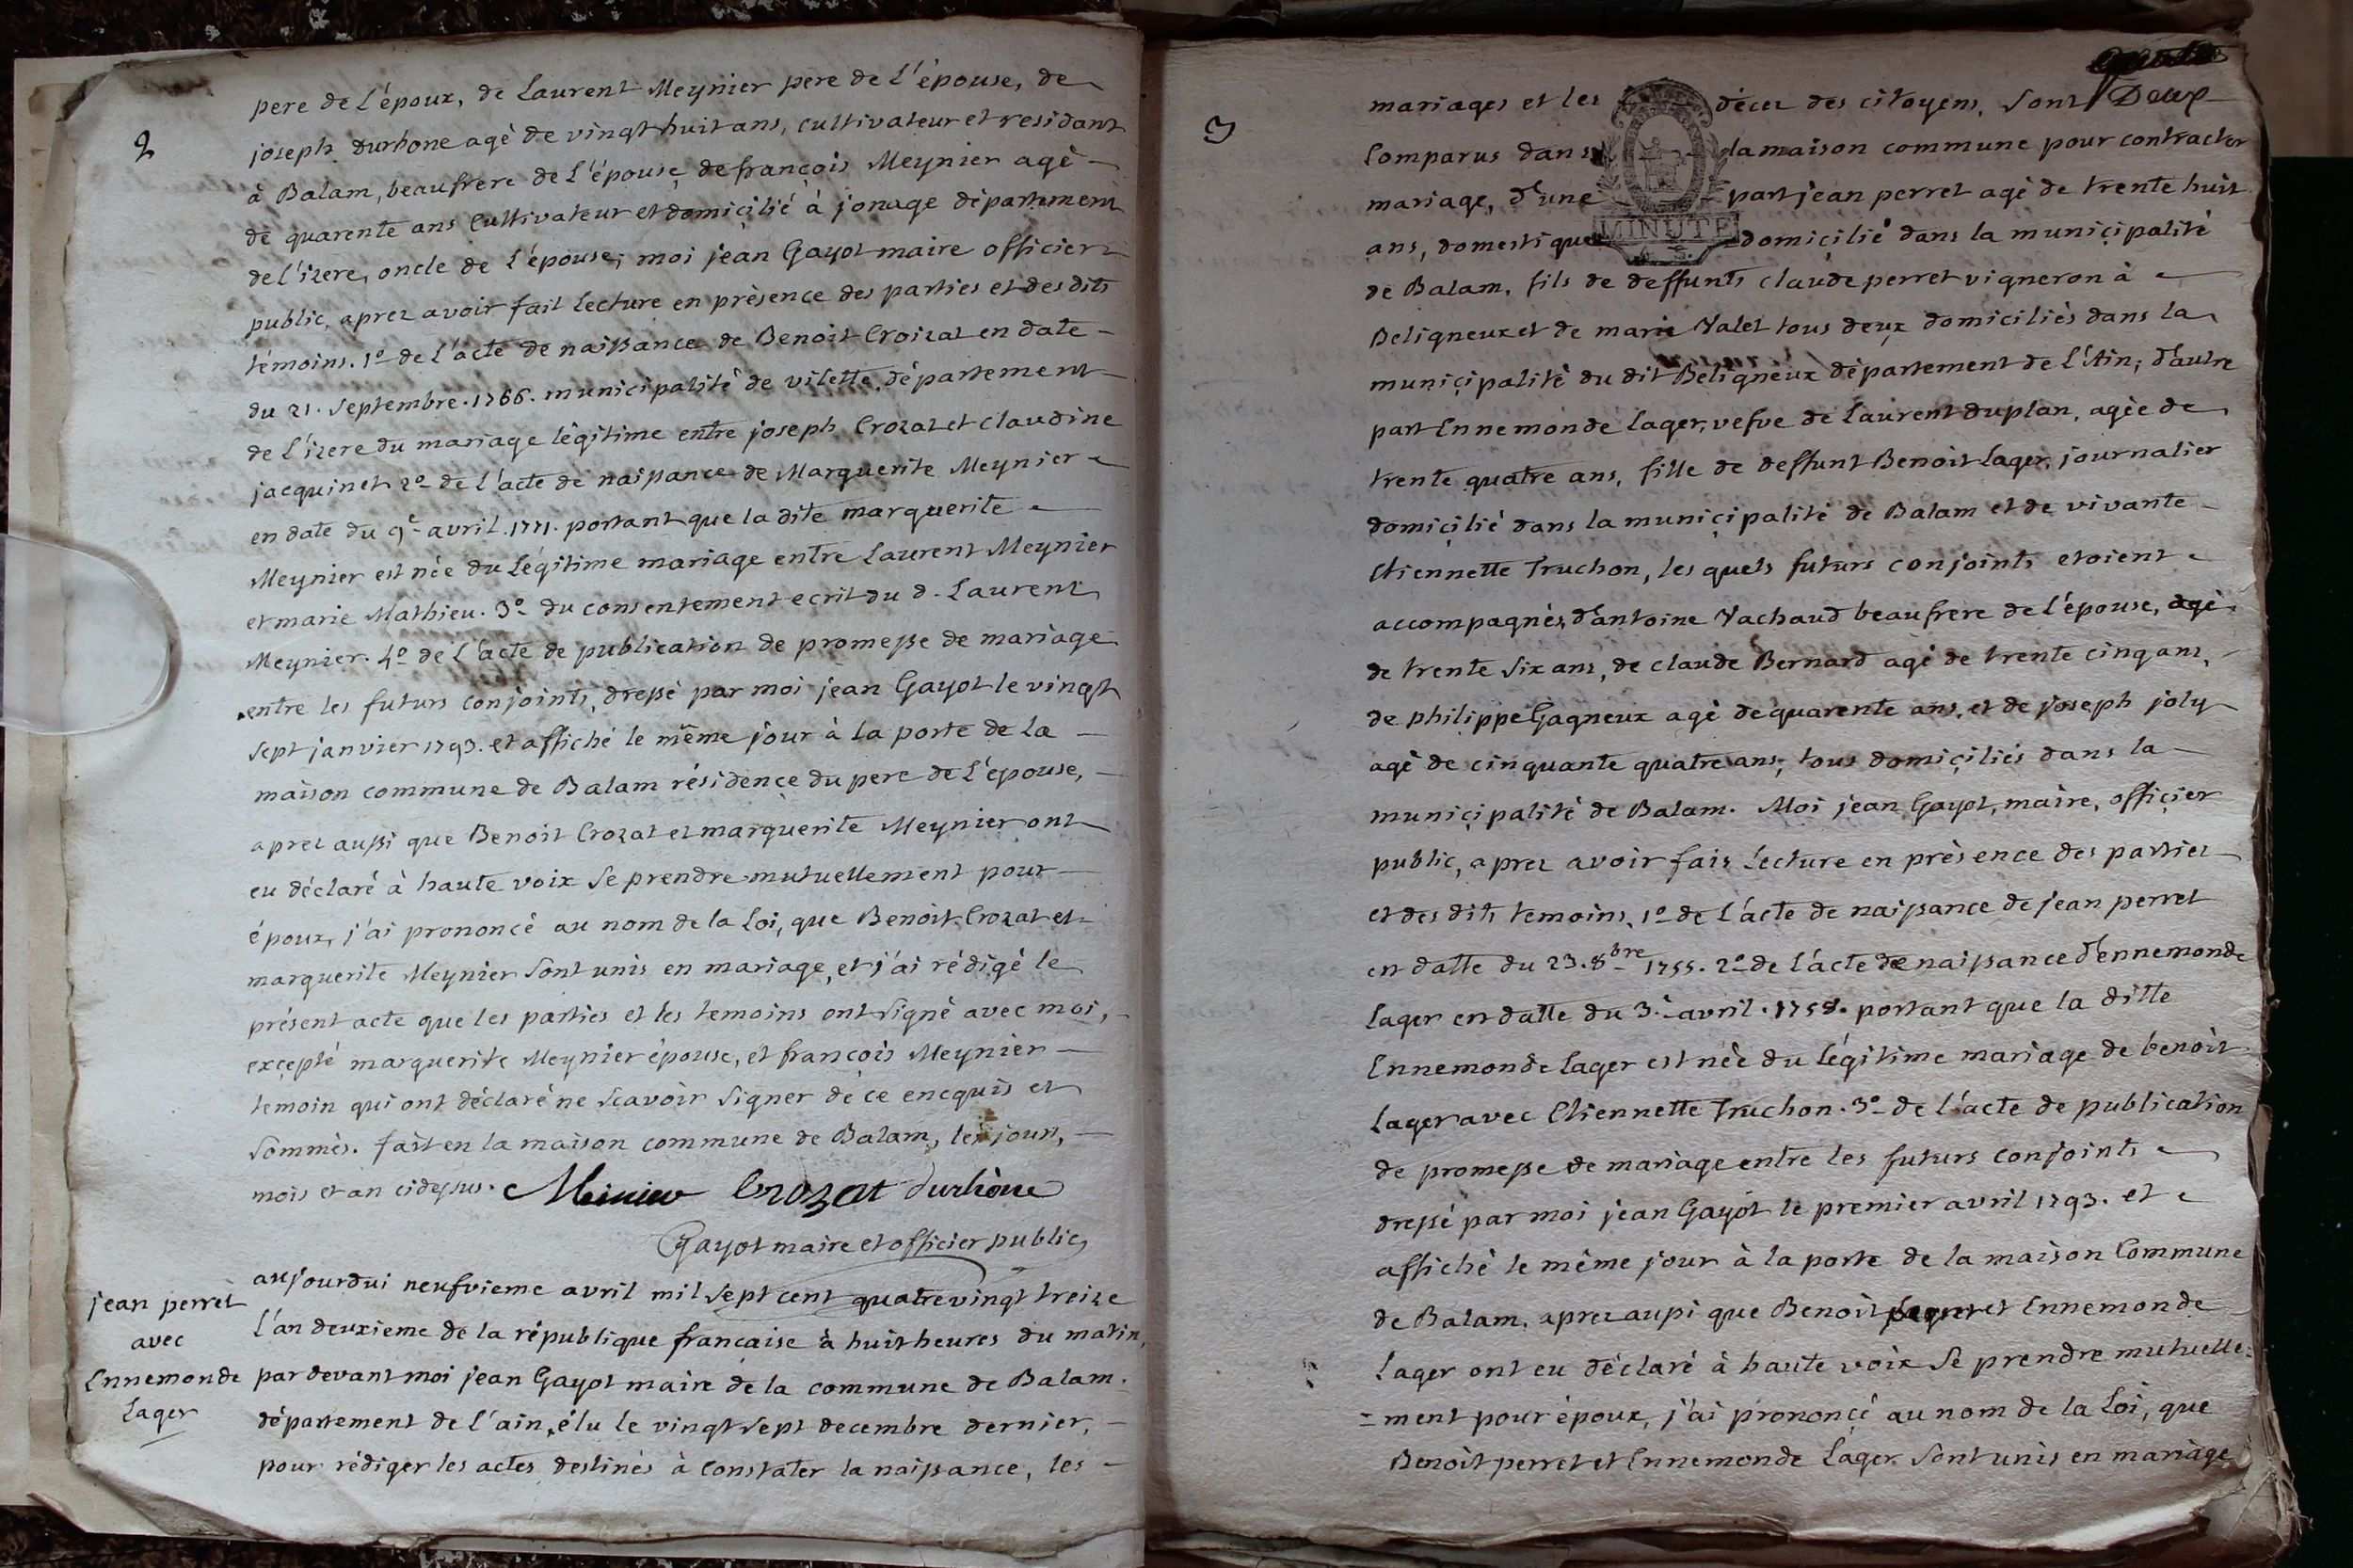 2
pere de l'époux, de Laurent Meynier pere de l'épouse, de
joseph durhone agè de vingt huit ans, cultivateur et residant
à Balam, beaufrere de l'épouse, de françois Meynier agè
de quarente ans cultivateur et domicilié à jonage département
de l'izere, oncle de l'épouse; moi jean Gayot maire officier
public, aprez avoir fait lecture en présence des parties et des dits
témoins. 1o de l'acte de naissance de Benoit Croizat en date
du 21. Septembre. 1766. municipalité de vilette, département
de l'izere du mariage légitime entre joseph Crozat et claudine
jacquinet 2o de l'acte de naissance de Marguerite Meynier
en date du 9e avril. 1771. portant que la dite marguerite
Meynier est née du légitime mariage entre Laurent Meynier
et marie Mathieu. 3o du consentement ecrit du d. Laurent
Meynier. 4o de l'acte de publication de promesse de mariage
entre les futurs conjoints, dressé par moi jean Gayot le vingt
sept janvier 1793. et affiché le même jour à la porte de la
maison commune de Balam résidence du pere de l'épouse,
aprez aussi que Benoit Crozat et marguerite Meynier ont
eu déclaré à haute voix se prendre mutuellement pour
époux, j'ai prononcé au nom de la Loi, que Benoit Crozat et
marguerite Meynier sont unis en mariage, et j'ai rédigé le
présent acte que les parties et les temoins ont signé avec moi,
excepté marguerite Meynier épouse, et françois Meynier
temoin qui ont déclaré ne scavoir signer de ce encquis et
sommés. fait en la maison commune de Balam, les jour,
mois et an cidessus. Meinier Crozat durhône
Gayot maire et officier public
jean perret
avec
Ennemonde
Lager
aujourdui neufvieme avril mil sept cent quatre vingt treize
l'an deuxieme de la république francaise à huit heures du matin,
par devant moi jean Gayot maire de la commune de Balam.
département de l'ain, élu le vingt sept decembre dernier,
pour rédiger les actes destinés à constater la naissance, les
3
mariages et les décez des citoyens, sont
Comparus dans la maison commune pour contracter
mariage, d'une part jean perret agè de trente huit
ans, domestique domicilié dans la municipalité
MINUTE
de Balam, fils de deffunts claude perret vigneron à
Beligneux et de marie Valet tous deux domiciliés dans la
municipalité du dit Beligneux département de L'Ain; d'autre
part Ennemonde Lager, vefve de Laurent duplan, agée de
trente quatre ans, fille de deffunt Benoit Lager, journalier
domicilié dans la municipalité de Balam et de vivante
Etiennette Truchon, lesquels futurs conjoints etoient
accompagnés d'antoine Vachaud beaufrere de l'épouse, agè
de trente six ans, de claude Bernard agé de trente cinq ans,
de philippe Gagneux agè de quarente ans, et de joseph joly
agè de cinquante quatre ans; tous domiciliés dans la
municipalité de Balam. Moi jean Gayot, maire, officier
public, aprez avoir fait lecture en présence des parties
et des dits temoins, 1o de l'acte de naissance de jean perret
en datte du 23. 8bre 1755. 2o de l'acte de naissance d'ennemonde
Lager en datte du 3e avril. 1758. portant que la ditte
Ennemonde Lager est née du légitime mariage de benoit
Lager avec Etiennette Truchon. 3o de l'acte de publication
de promesse de mariage entre les futurs conjoints
dressé par moi jean Gayot le premier avril 1793. et
affiché le même jour à la porte de la maison Commune
de Balam, aprez aussi que Benoit et Ennemonde
Lager ont eu déclaré à haute voix se prendre mutuelle=
=ment pour époux, j'ai prononcé au nom de la Loi, que
Benoit perret et Ennemonde Lager sont unis en mariage